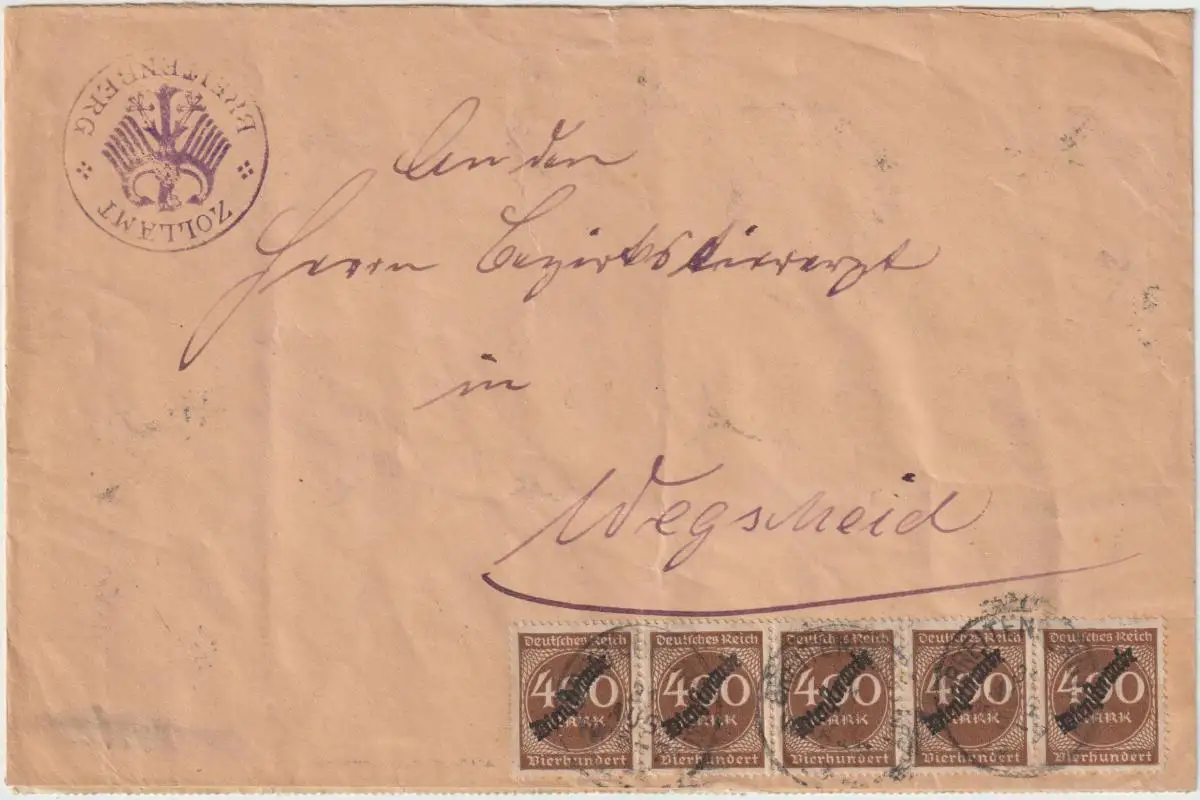 BREITENBERG
ZOLLAMT
An den
Herrn Bezirkstierarzt
in
Wegscheid
Deutsches Reich Deutsches Reich Deutsches Reich Deutsches Reich Deutsches Reich
400 400 400 400 400
MARK MARK MARK MARK MARK
Dienstmarke Dienstmarke Dienstmarke Dienstmarke Dienstmarke
Vierhundert Vierhundert Vierhundert Vierhundert Vierhundert